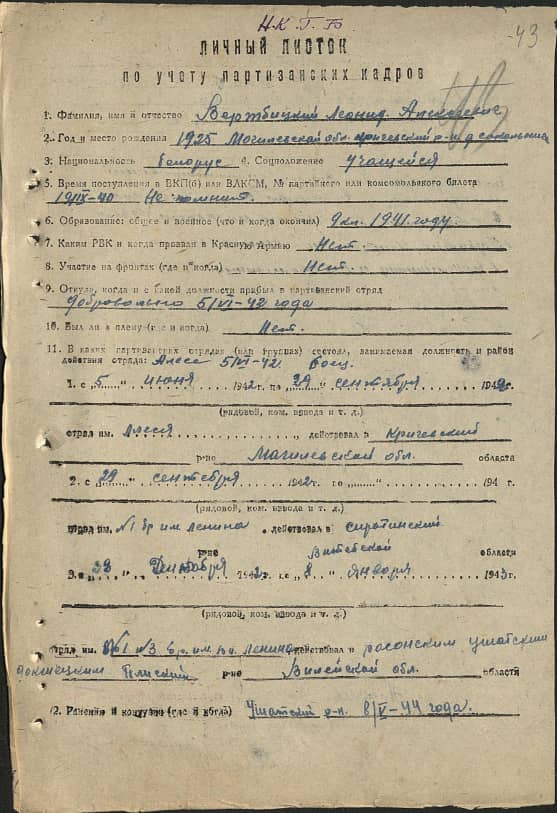 Н К Г Б
43
ЛИЧНЫЙ ЛИСТОК
по учету партизанских кадров
1. Фамилия, имя и отчество Вержбицкий Леонид
2. Год и место рождения 1925 Могилевской обл. Кричевский р-н д. Сокольничи
3. Национальность белорус 4. Соцположение учащейся
5. Время поступления в ВКП(б) или ВЛКСМ, № партийного или комсомольского билета
19/IX-40 Не помнит.
6. Образование: общее и военное (что и когда окончил) 9 кл. 1941 году.
7. Каким РВК и когда призван в Красную Армию Нет.
8. Участие на фронтах (где и когда) Нет.
9. Откуда, когда и с какой должности прибыл в партизанский отряд
Добровольно 5/VI-42 года
10. Был ли в плену (где и когда) Нет.
11. В каких партизанских отрядах (или группах) состоял, занимаемая должность и район
действия отряда: Алеся 5/VI-42 боец.
1. с „5" июня 1942г. по „29" сентября 1942г.
(рядовой, ком. взвода и т. д.)
отряд им. Алеся действовал в Кричевский
р-не Могилевской обл. области
2. с „29" сентября 1942г. по „ " 194 г.
(рядовой, ком. взвода и т. д.)
отряд им. №1 бр им. Ленина действовал в Сиротинский
р-не Витебской области
3. с „ " 194 г. по „8" января 194 г.
(рядовой, ком. взвода и т. д.)
отряд им. №3 бр. им. Ленина действовал в росонским ушатским
докшецким Плиский р-не Вилейской обл. области
12. Ранения и контузии (где и когда) Ушатский р-н. 8/V-44 года.